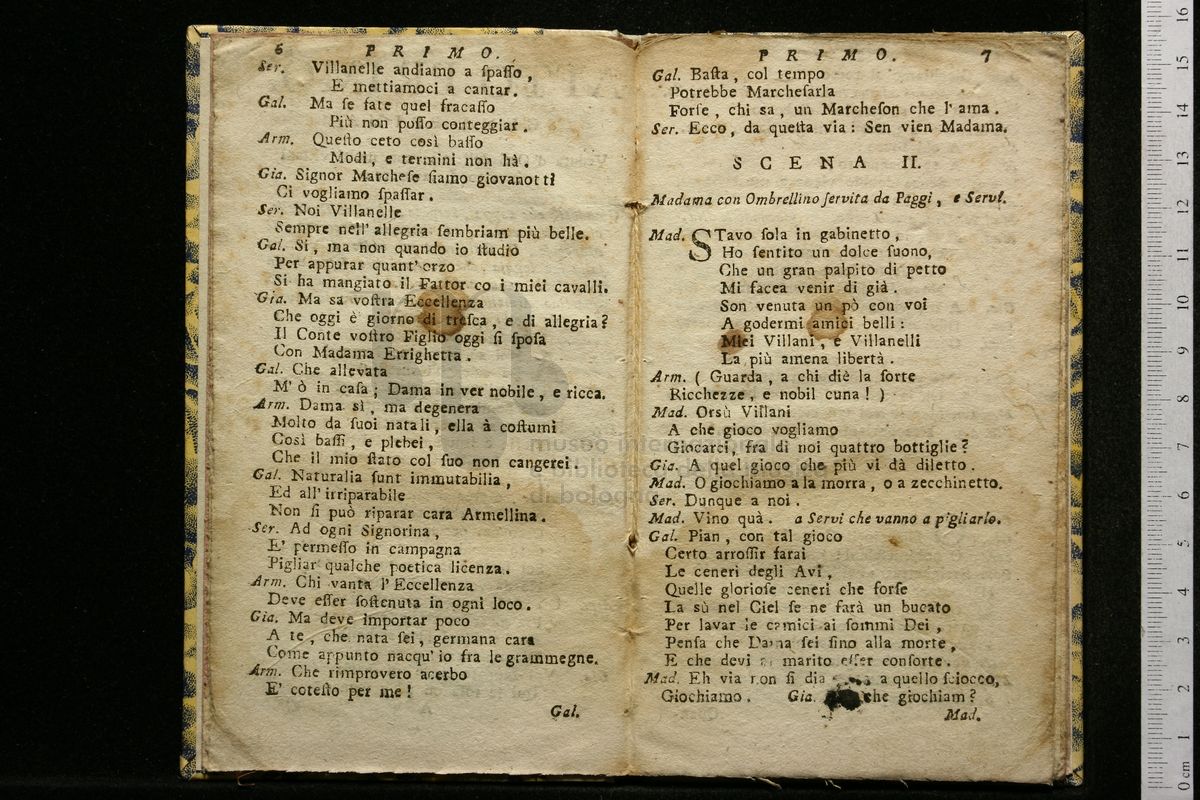 6 PRIMO.
Ser. Villanelle andiamo a ſpaſſo,
E mettiamoci a cantar.
Gal. Ma ſe fate quel fracaſſo
Più non poſſo conteggiar.
Arm. Queſto ceto così baſſo
Modi, e termini non hà.
Gia. Signor Marcheſe ſiamo giovanotti
Ci vogliamo ſpaſſar.
Ser. Noi Villanelle
Sempre nell' allegria ſembriam più belle.
Gal. Si, ma non quando io ſtudio
Per appurar quant' orzo
Si ha mangiato il Fattor co i miei cavalli.
Gia. Ma sa voſtra Eccellenza
Che oggi è giorno di treſca, e di allegria?
Il Conte voſtro Figlio oggi ſi ſpoſa
Con Madama Errighetta.
Gal. Che allevata
M' ò in caſa; Dama in ver nobile, e ricca.
Arm. Dama sì, ma degenera
Molto da ſuoi natali, ella à coſtumi
Così baſſi, e plebei,
Che il mio ſtato col ſuo non cangerei.
Gal. Naturalia ſunt immutabilia,
Ed all' irriparabile
Non ſi può riparar cara Armellina.
Ser. Ad ogni Signorina,
E' permeſſo in campagna
Pigliar qualche poetica licenza.
Arm. Chi vanta l' Eccellenza
Deve eſſer ſoſtenuta in ogni loco.
Gia. Ma deve importar poco
A te, che nata ſei, germana cara
Come appunto nacqu' io fra le grammegne.
Arm. Che rimprovero acerbo
E' coteſto per me!
Gal.
PRIMO. 7
Gal. Baſta, col tempo
Potrebbe Marcheſarla
Forſe, chi sa, un Marcheſon che l' ama.
Ser. Ecco, da queſta via: Sen vien Madama.
SCENA II.
Madama con Ombrellino ſervita da Paggi, e Servi.
Mad. STavo ſola in gabinetto,
Ho ſentito un dolce ſuono,
Che un gran palpito di petto
Mi facea venir di già.
Son venuta un pò con voi
A godermi amici belli:
Miei Villani, e Villanelli
La più amena libertà.
Arm. (Guarda, a chi diè la ſorte
Ricchezze, e nobil cuna!)
Mad. Orsù Villani
A che gioco vogliamo
Giocarci, fra di noi quattro bottiglie?
Gia. A quel gioco che più vi dà diletto.
Mad. O giochiamo a la morra, o a zecchinetto.
Ser. Dunque a noi.
Mad. Vino quà. a Servi che vanno a pigliarlo.
Gal. Pian, con tal gioco
Certo arroſſir farai
Le ceneri degli Avi,
Quelle glorioſe ceneri che forſe
La sù nel Ciel ſe ne farà un bucato
Per lavar le camici ai ſommi Dei,
Penſa che Dama ſei ſino alla morte,
E che devi marito eſſer conſorte.
Mad. Eh via non ſi dia a quello ſciocco,
Giochiamo. Gia. che giochiam?
Mad.
museo internazionale
e biblioteca della musica
di bologna